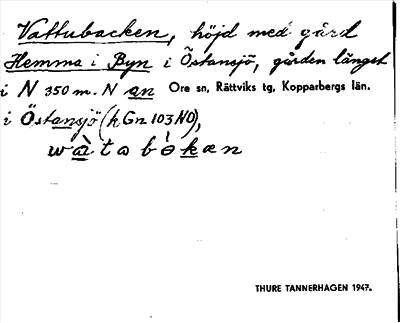 Vattubacken, höjd med gård
Hemma i Byn i Östansjö, gården längst
i N 350 m. N an Ore sn, Rättviks tg, Kopparbergs län.
i Östansjö (hGn 103 NO),
wàtabòkæn
THURE TANNERHAGEN 1947.